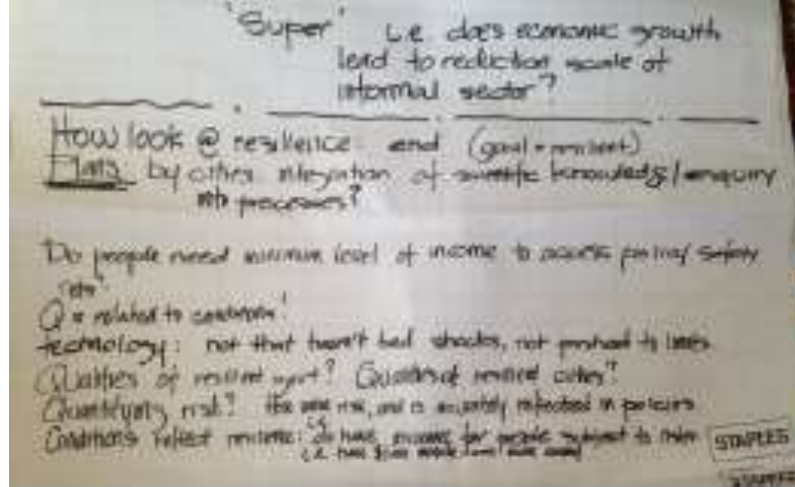 'Super' i.e does economic growth
lead to reduction scale of
informal sector?
How look @ resilience end (goal = resilient)
Plans by cities integration of scientific knowledge/enquiry
into processes?
Do people need minimum level of income to access policy/safety
Q = related to
technology: not that haven't had shocks, not pushed to limits
Qualities of resilient ? Qualities of resilient cities?
Quantifying risk? risk, and is accurately reflected in policies
Conditions reflect resilience: do have for people subject to
STAPLES
STAPLES